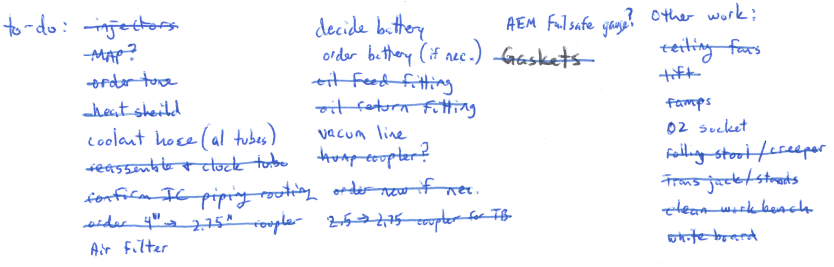 to-do:
injectors
MAP?
order tune
heat sheild
coolant hose (al tubes)
reassemble & clock turbo
confirm IC piping routing
order 4" → 2.75" coupler
Air Filter
decide battery
order battery (if nec.)
oil feed fitting
oil return fitting
vacum line
hump coupler?
order new if nec.
2.5 → 2.75 coupler for TB
AEM Failsafe gauge?
Gaskets
Other work:
ceiling fans
lift
ramps
O2 socket
rolling stool/creeper
Trans jack/stands
clean work bench
white board